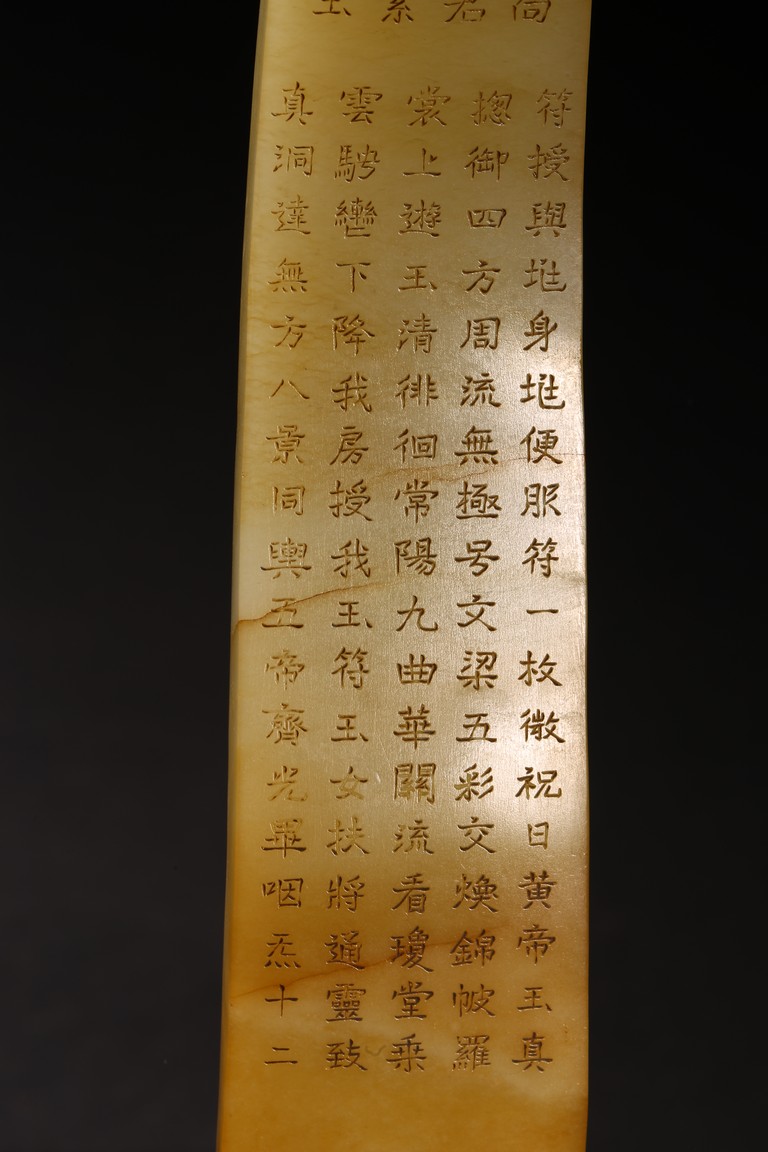 符授與身便服符一枚微祝曰黄帝玉真
揔御四方周流無極号文梁五彩交煥錦帔羅
裳上遊玉清徘徊常陽九曲華關流看瓊堂乗
雲騁轡下降我房授我玉符玉女扶將通靈致
真洞達無方八景同輿五帝齊光畢咽炁十二